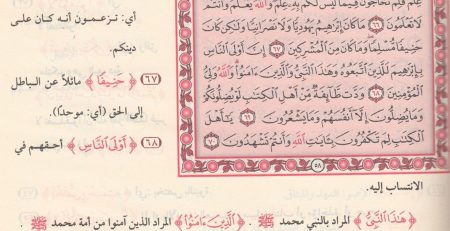 عِلْمٌ فَلِمَ تُحَاجُّونَ فِيمَا لَيْسَ لَكُم بِهِۦ عِلْمٌ وَٱللَّهُ يَعْلَمُ وَأَنتُمْ
لَا تَعْلَمُونَ ٦٦ مَا كَانَ إِبْرَٰهِيمُ يَهُودِيًّا وَلَا نَصْرَانِيًّا وَلَٰكِن كَانَ
حَنِيفًا مُّسْلِمًا وَمَا كَانَ مِنَ ٱلْمُشْرِكِينَ ٦٧ إِنَّ أَوْلَى ٱلنَّاسِ
بِإِبْرَٰهِيمَ لَلَّذِينَ ٱتَّبَعُوهُ وَهَٰذَا ٱلنَّبِىُّ وَٱلَّذِينَ ءَامَنُوا۟ وَٱللَّهُ وَلِىُّ
ٱلْمُؤْمِنِينَ ٦٨ وَدَّت طَّآئِفَةٌ مِّنْ أَهْلِ ٱلْكِتَٰبِ لَوْ يُضِلُّونَكُمْ
وَمَا يُضِلُّونَ إِلَّآ أَنفُسَهُمْ وَمَا يَشْعُرُونَ ٦٩ يَٰٓأَهْلَ
ٱلْكِتَٰبِ لِمَ تَكْفُرُونَ بِـَٔايَٰتِ ٱللَّهِ وَأَنتُمْ تَشْهَدُونَ ٧٠
٥٨
أي: تزعمون أنه كان على
دينكم.
٦٧ ﴿حَنِيفًا﴾ مائلاً عن الباطل
إلى الحق (أي: موحدًا).
٦٨ ﴿أَوْلَى ٱلنَّاسِ﴾ أحقهم في
الانتساب إليه.
﴿هَٰذَا ٱلنَّبِىُّ﴾ المراد بالنبي محمد ﷺ. ﴿ٱلَّذِينَ ءَامَنُوا۟﴾ المراد الذين آمنوا من أمة محمد ﷺ.